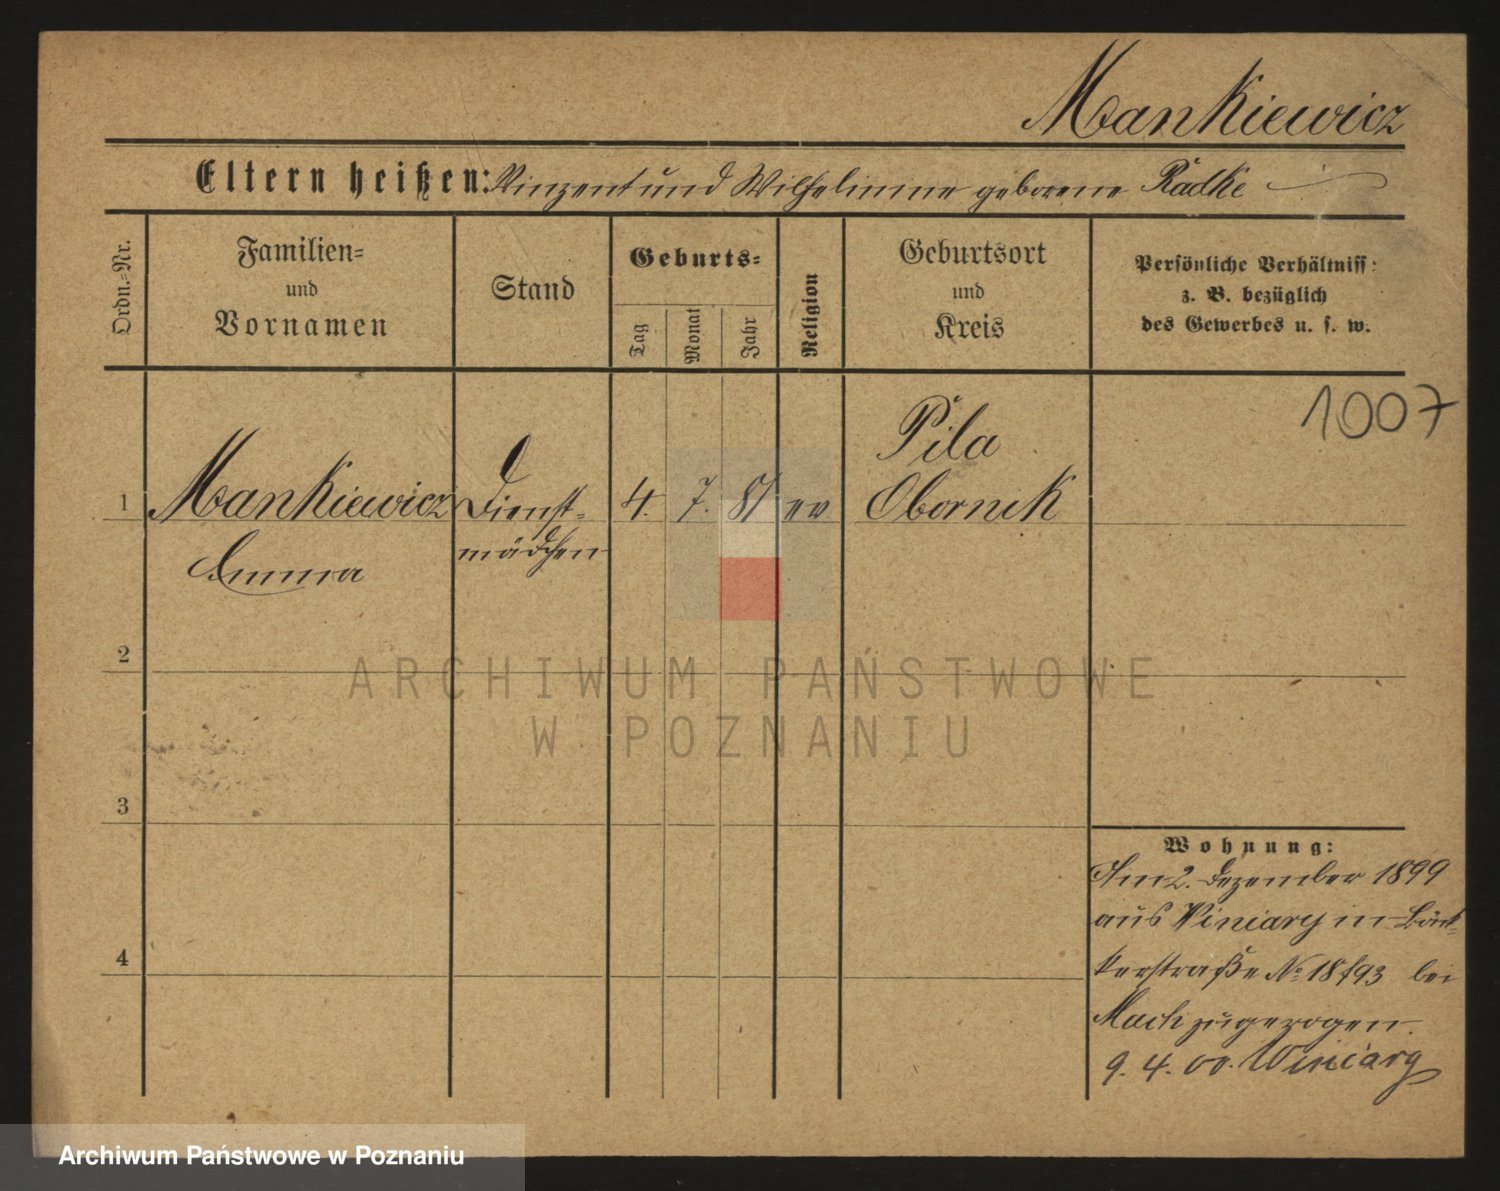 Mankiewicz
Eltern heißen: Vinzent und Wilhelmine geborene Radke
Ordn.-Nr.
Familien-
und
Vornamen
Stand
Geburts-
Tag
Monat
Jahr
Religion
Geburtsort
und
Kreis
Persönliche Verhältniss:
z. B. bezüglich
des Gewerbes u. s. w.
1007
1 Mankiewicz Dienst- 4. 7. 81 ev. Pila
Obornik
Emma
mädchen
2
3
4
Wohnung:
Am 2. Dezember 1899
aus Winiary in
No 18/93 bei
Mach zugezogen.
9. 4. 00. Winiary
ARCHIWUM PAŃSTWOWE
W POZNANIU
Archiwum Państwowe w Poznaniu